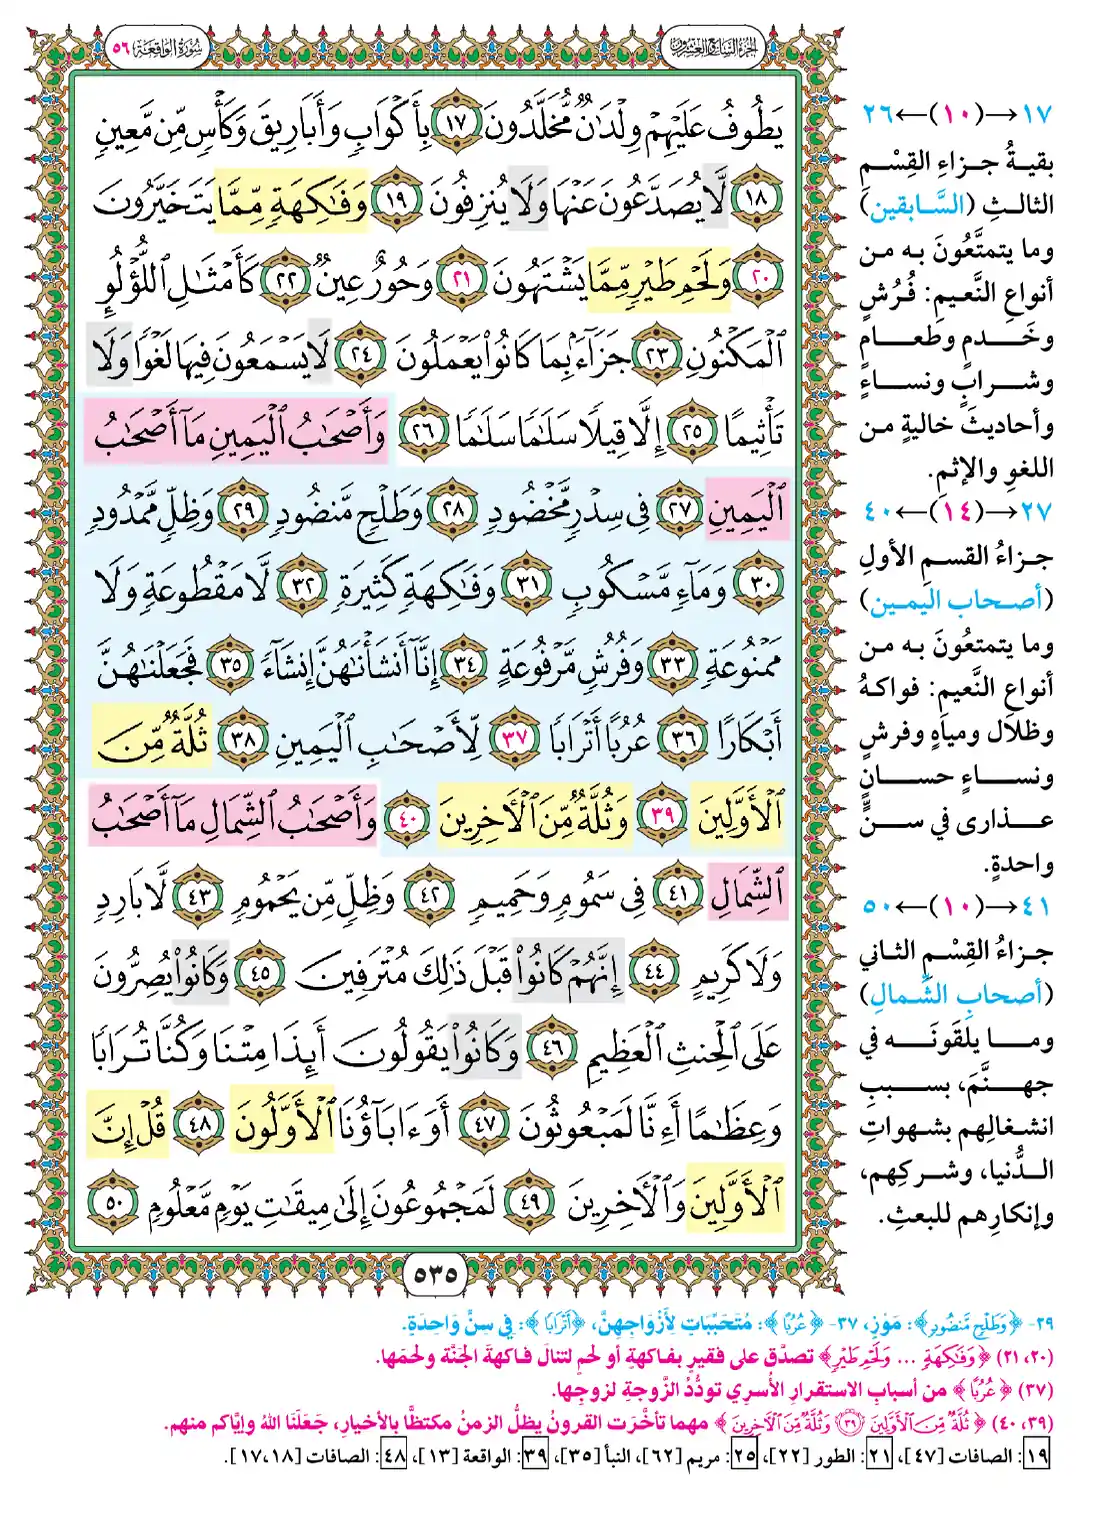 الجزء السابع والعشرون
سورة الواقعة ٥٦
يَطُوفُ عَلَيْهِمْ وِلْدَٰنٌ مُّخَلَّدُونَ ١٧ بِأَكْوَابٍ وَأَبَارِيقَ وَكَأْسٍ مِّن مَّعِينٍ
١٨ لَّا يُصَدَّعُونَ عَنْهَا وَلَا يُنزِفُونَ ١٩ وَفَٰكِهَةٍ مِّمَّا يَتَخَيَّرُونَ
٢٠ وَلَحْمِ طَيْرٍ مِّمَّا يَشْتَهُونَ ٢١ وَحُورٌ عِينٌ ٢٢ كَأَمْثَٰلِ اللُّؤْلُؤِ
الْمَكْنُونِ ٢٣ جَزَآءًۢ بِمَا كَانُوا۟ يَعْمَلُونَ ٢٤ لَا يَسْمَعُونَ فِيهَا لَغْوًا وَلَا
تَأْثِيمًا ٢٥ إِلَّا قِيلًا سَلَٰمًا سَلَٰمًا ٢٦ وَأَصْحَٰبُ الْيَمِينِ مَآ أَصْحَٰبُ
الْيَمِينِ ٢٧ فِى سِدْرٍ مَّخْضُودٍ ٢٨ وَطَلْحٍ مَّنضُودٍ ٢٩ وَظِلٍّ مَّمْدُودٍ
٣٠ وَمَآءٍ مَّسْكُوبٍ ٣١ وَفَٰكِهَةٍ كَثِيرَةٍ ٣٢ لَّا مَقْطُوعَةٍ وَلَا
مَمْنُوعَةٍ ٣٣ وَفُرُشٍ مَّرْفُوعَةٍ ٣٤ إِنَّآ أَنشَأْنَٰهُنَّ إِنشَآءً ٣٥ فَجَعَلْنَٰهُنَّ
أَبْكَارًا ٣٦ عُرُبًا أَتْرَابًا ٣٧ لِّأَصْحَٰبِ الْيَمِينِ ٣٨ ثُلَّةٌ مِّنَ
الْأَوَّلِينَ ٣٩ وَثُلَّةٌ مِّنَ الْءَاخِرِينَ ٤٠ وَأَصْحَٰبُ الشِّمَالِ مَآ أَصْحَٰبُ
الشِّمَالِ ٤١ فِى سَمُومٍ وَحَمِيمٍ ٤٢ وَظِلٍّ مِّن يَحْمُومٍ ٤٣ لَّا بَارِدٍ
وَلَا كَرِيمٍ ٤٤ إِنَّهُمْ كَانُوا۟ قَبْلَ ذَٰلِكَ مُتْرَفِينَ ٤٥ وَكَانُوا۟ يُصِرُّونَ
عَلَى الْحِنثِ الْعَظِيمِ ٤٦ وَكَانُوا۟ يَقُولُونَ أَئِذَا مِتْنَا وَكُنَّا تُرَابًا
وَعِظَٰمًا أَءِنَّا لَمَبْعُوثُونَ ٤٧ أَوَءَابَآؤُنَا الْأَوَّلُونَ ٤٨ قُلْ إِنَّ
الْأَوَّلِينَ وَالْءَاخِرِينَ ٤٩ لَمَجْمُوعُونَ إِلَىٰ مِيقَٰتِ يَوْمٍ مَّعْلُومٍ ٥٠
٥٣٥
١٧→(١٠)←٢٦
بقيةُ جزاءِ القِسْمِ
الثالثِ (السَّابقين)
وما يتمتَّعُونَ به من
أنواعِ النَّعيمِ: فُرُشٍ
وخَدمٍ وطعامٍ
وشرابٍ ونساءٍ
وأحاديثَ خاليةٍ من
اللغوِ والإثمِ.
٢٧→(١٤)←٤٠
جزاءُ القسمِ الأولِ
(أصحاب اليمين)
وما يتمتعُونَ به من
أنواعِ النَّعيمِ: فواكهُ
وظلال ومياهٍ وفرشٍ
ونساءٍ حسانٍ
عذارى في سنٍّ
واحدةٍ.
٤١→(١٠)←٥٠
جزاءُ القِسْمِ الثاني
(أصحابِ الشِّمالِ)
وما يلقَونَه في
جهنَّمَ، بسببِ
انشغالِهم بشهواتِ
الدُّنيا، وشركِهم،
وإنكارِهم للبعثِ.
٢٩- ﴿وَطَلْحٍ مَّنضُودٍ﴾: مَوْزٍ، ٣٧- ﴿عُرُبًا﴾: مُتَحَبِّبَاتٍ لِأَزْوَاجِهِنَّ، ﴿أَتْرَابًا﴾: فِي سِنٍّ وَاحِدَةٍ.
(٢٠، ٢١) ﴿وَفَٰكِهَةٍ ... وَلَحْمِ طَيْرٍ﴾ تصدَّق على فقيرٍ بفاكهةٍ أو لحمٍ لتنالَ فاكهةَ الجَنَّة ولحمَها.
(٣٧) ﴿عُرُبًا﴾ من أسبابِ الاستقرارِ الأُسري تودُّدُ الزَّوجةِ لزوجِها.
(٣٩، ٤٠) ﴿ثُلَّةٌ مِّنَ الْأَوَّلِينَ ٣٩ وَثُلَّةٌ مِّنَ الْءَاخِرِينَ﴾ مهما تأخَّرَت القرونُ يظلُّ الزمنُ مكتظًّا بالأخيارِ، جَعَلَنَا اللهُ وإيَّاكم منهم.
١٩: الصافات [٤٧]، ٢١: الطور [٢٢]، ٢٥: مريم [٦٢]، النبأ [٣٥]، ٣٩: الواقعة [١٣]، ٤٨: الصافات [١٧،١٨].